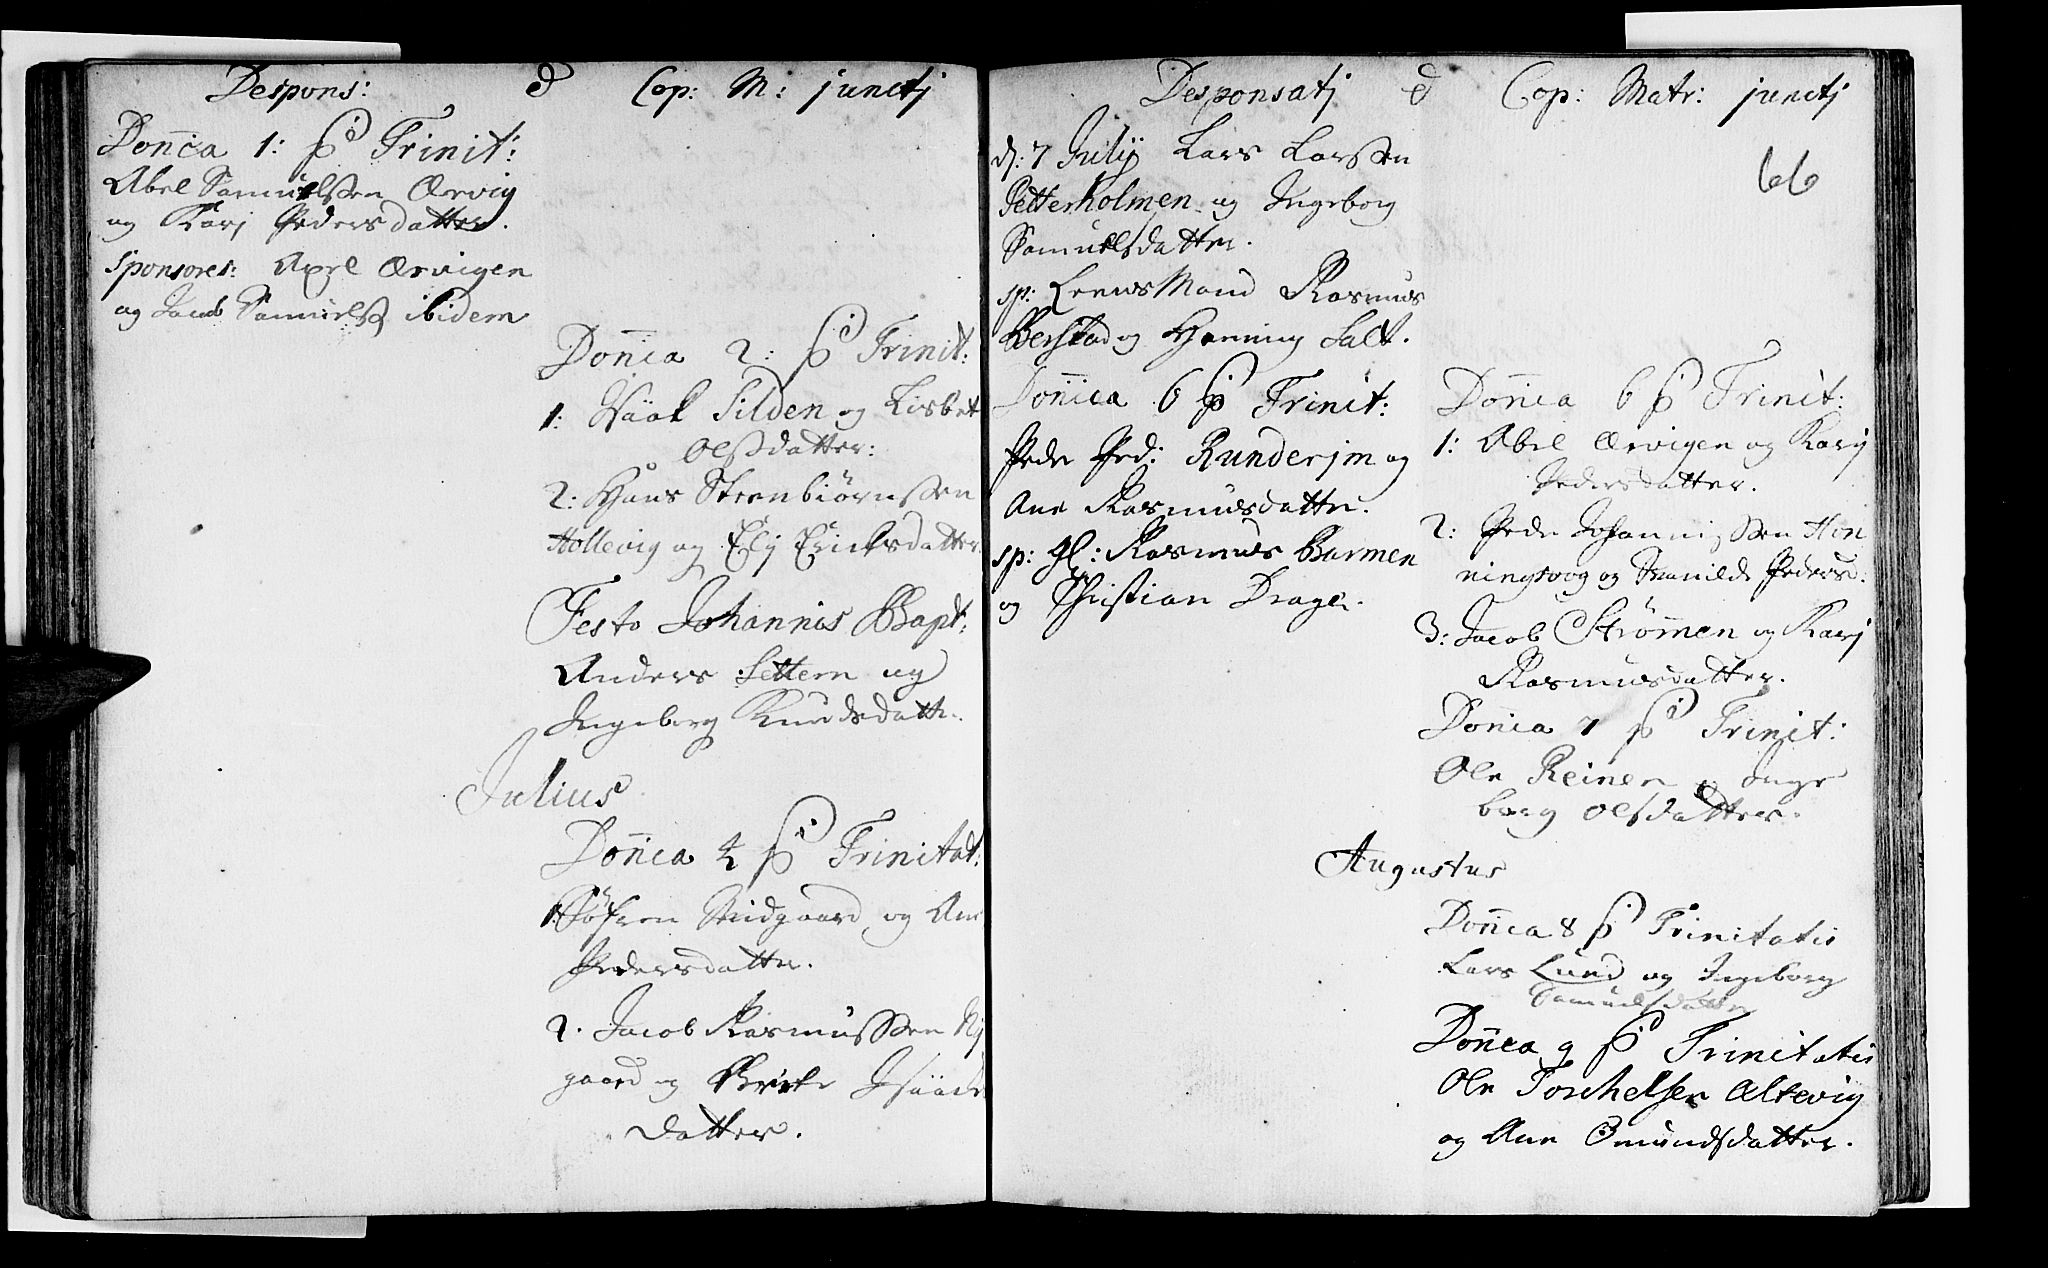 Despons: & Cop: M: junctj
Don̄ica 1: p Trinit:
Abel Samuelssen Ærvig
og Karj Pedersdatter.
Sponsores: Axel Ærvigen
og Jacob Samuels: ibidem
Don̄ica 2: p Trinit:
1: Isaak Silden og Lisbet
Olsdatter:
2: Hans Steenbiørnssen
Hollevig og Elj Ericksdatter
Festo Johannis Bapt:
Anders Settem og
Ingeborg Knudsdatter.
Julius
Don̄ica 4 p Trinitat:
1: Søfren Midgaard og Ane
Pedersdatter.
2. Jacob Rasmussen Nj
gaard og Brite Isaacs
datter.
Desponsatj & Cop: Matr: junctj
66
d: 7 Julij Lars Larssen
Petterholmen og Ingeborg
Samuelsdatter.
sp: Leensmand Rasmus
Berstad og Henning Salt.
Don̄ica 6 p Trinit:
Peder Ped: Runderjm og
Ane Rasmusdatter.
sp: gl: Rasmus Barmen
og Christian Drage.
Don̄ica 6 p Trinit:
1: Abel Ærvigen og Karj
Pedersdatter.
2: Peder Johannissen Hon
ningsvog og Pedersd:
3: Jacob Strømmen og Karj
Rasmusdatter.
Don̄ica 7 p Trinit:
Ole Reinen og Inge
borg Olsdatter.
Augustus
Don̄ica 8 p Trinitatis
Lars Lund og Ingeborg
Samuelsdatter
Don̄ica 9 p Trinitatis
Ole Torchelsen Altevig
og Ane Omundsdatter.